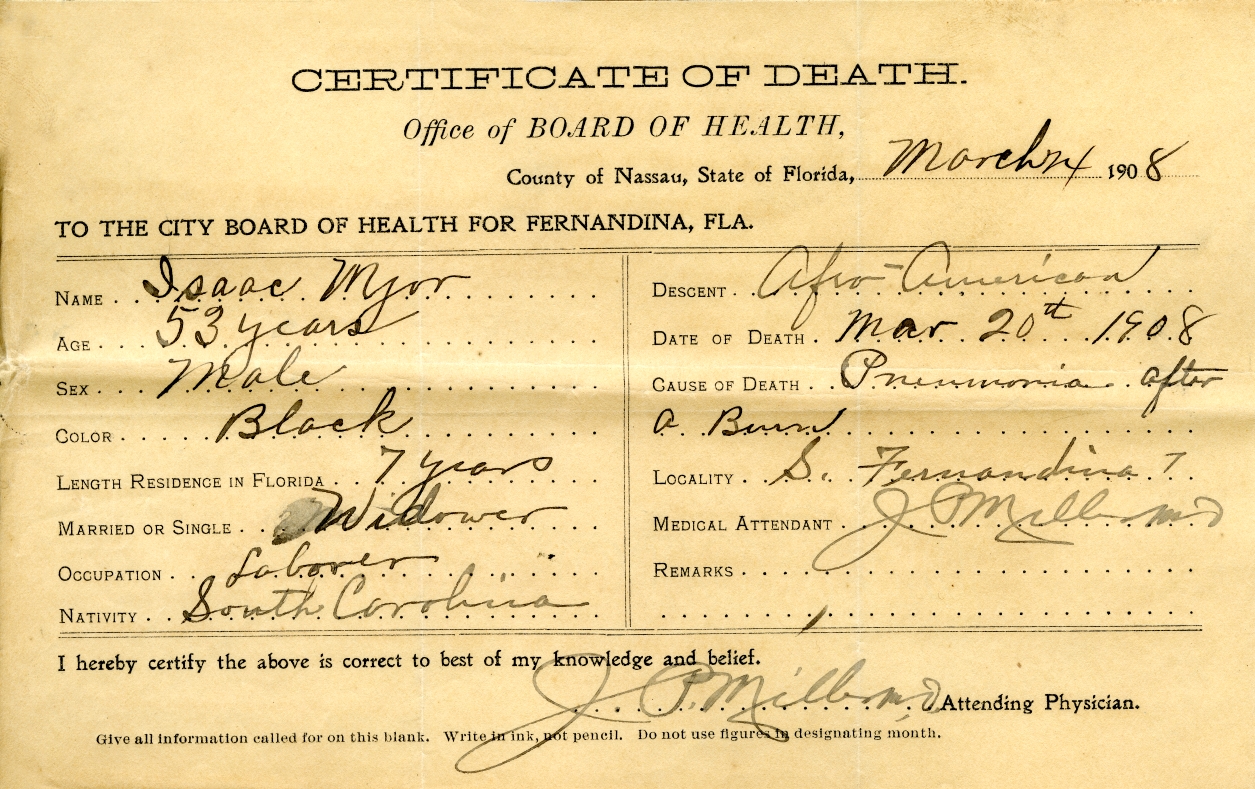 CERTIFICATE OF DEATH.
Office of BOARD OF HEALTH,
County of Nassau, State of Florida, March 24 1908
TO THE CITY BOARD OF HEALTH FOR FERNANDINA, FLA.
NAME Isaac Myor
AGE 53 years
SEX Male
COLOR Black
LENGTH RESIDENCE IN FLORIDA 7 years
MARRIED OR SINGLE Widower
OCCUPATION Laborer
NATIVITY South Carolina
DESCENT Afro-American
DATE OF DEATH Mar 20th 1908
CAUSE OF DEATH Pneumonia after
a Burn
LOCALITY S. Fernandina
MEDICAL ATTENDANT J P Miller MD
REMARKS
I hereby certify the above is correct to best of my knowledge and belief.
J. P. Miller MD, Attending Physician.
Give all information called for on this blank. Write in ink, not pencil. Do not use figures in designating month.